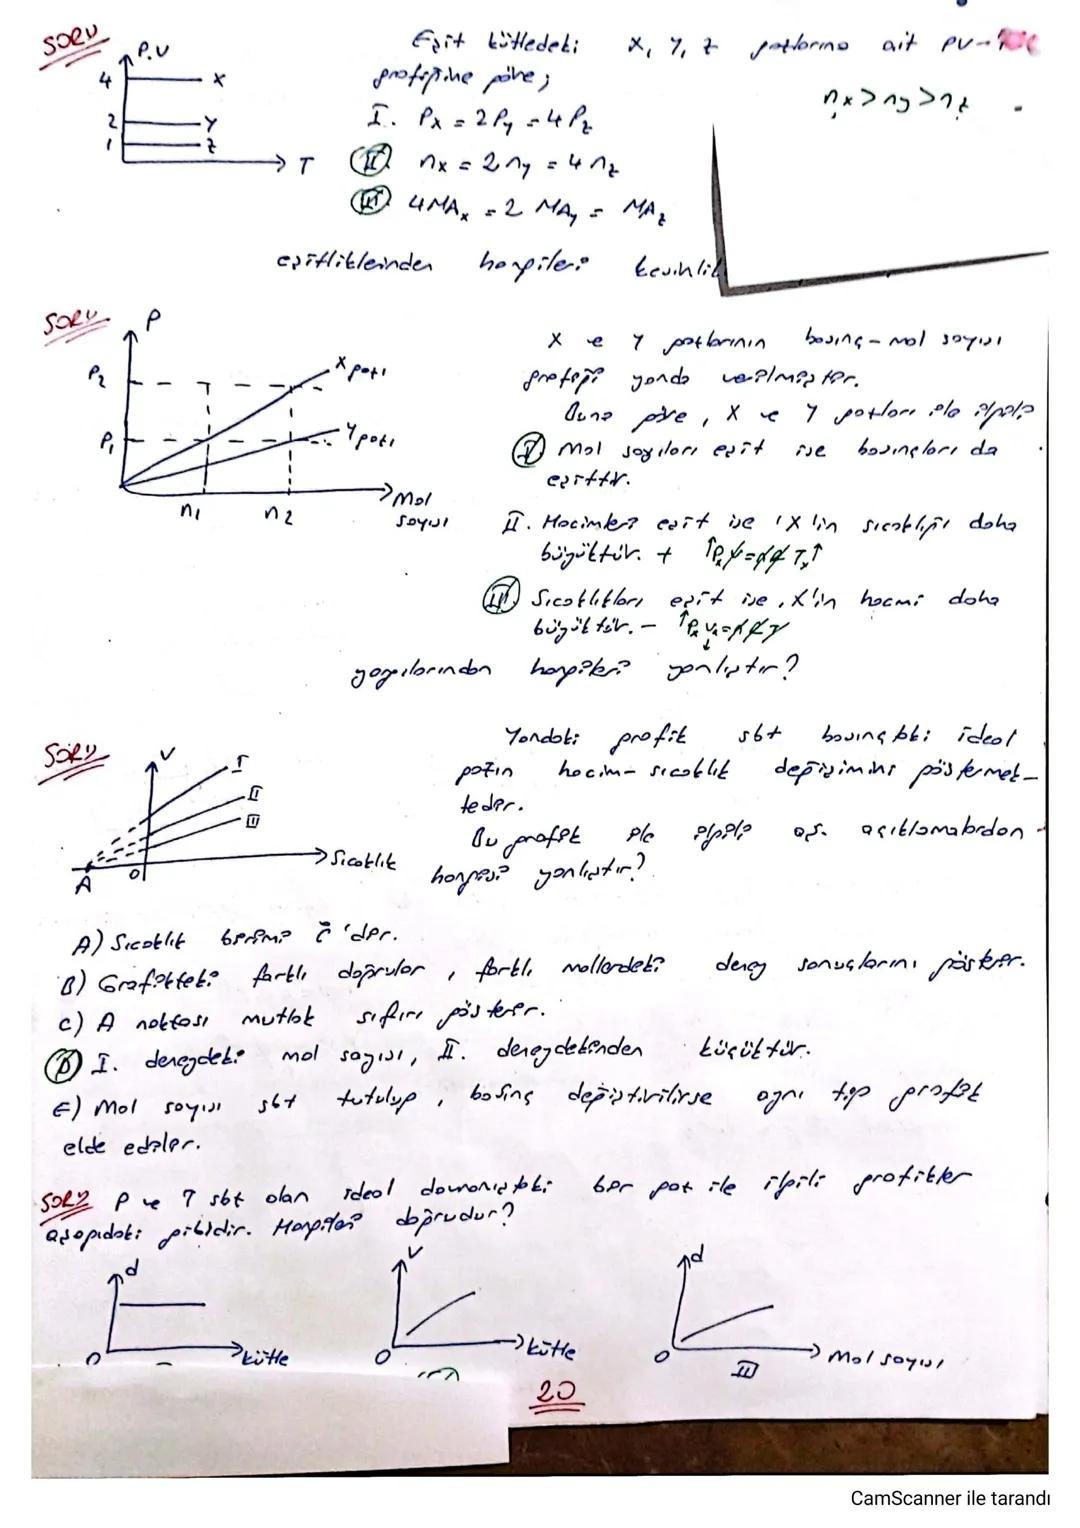 SORU
P.V
4
X
2
Y
1
Z
T
Eşit kütledeki X, Y, Z gazlarına ait PV-
grafiğine göre;
I. Px = 2Py = 4Pz
II nx = 2ny = 4nz
III 4MAx = 2MAy = MAz
eşitliklerinden hangileri kesinlik
nx > ny > nz
SORU
P
P2
P1
X gazı
Y gazı
n1
n2
Mol sayısı
X ve Y gazlarının basınç-mol sayısı
grafiği yanda verilmiştir.
Buna göre, X ve Y gazları ile ilgili
I Mol sayıları eşit ise basınçları da
eşittir.
II. Hacimleri eşit ise 'X'in sıcaklığı daha
büyüktür. +
III Sıcaklıkları eşit ise, X'in hacmi daha
büyüktür. -
yargılarından hangileri yanlıştır?
SORU
V
I
II
III
Sıcaklık
A
0
Yandaki grafik sbt basınçtaki ideal
gazın hacim-sıcaklık değişimini göstermek-
tedir.
Bu grafik ile ilgili aş. açıklamalardan
hangisi yanlıştır?
A) Sıcaklık birimi °C 'dir.
B) Grafikteki farklı doğrular, farklı mollerdeki deney sonuçlarını gösterir.
C) A noktası mutlak sıfırı gösterir.
D) I. deneydeki mol sayısı, II. deneydekinden küçüktür.
E) Mol sayısı sbt tutulup, basınç değiştirilirse aynı tip grafik
elde edilir.
SORU P ve T sbt olan ideal davranıştaki bir gaz ile ilgili grafikler
aşağıdaki gibidir. Hangileri doğrudur?
d
0
kütle
V
0
kütle
d
0
Mol sayısı
III
20
CamScanner ile tarandı